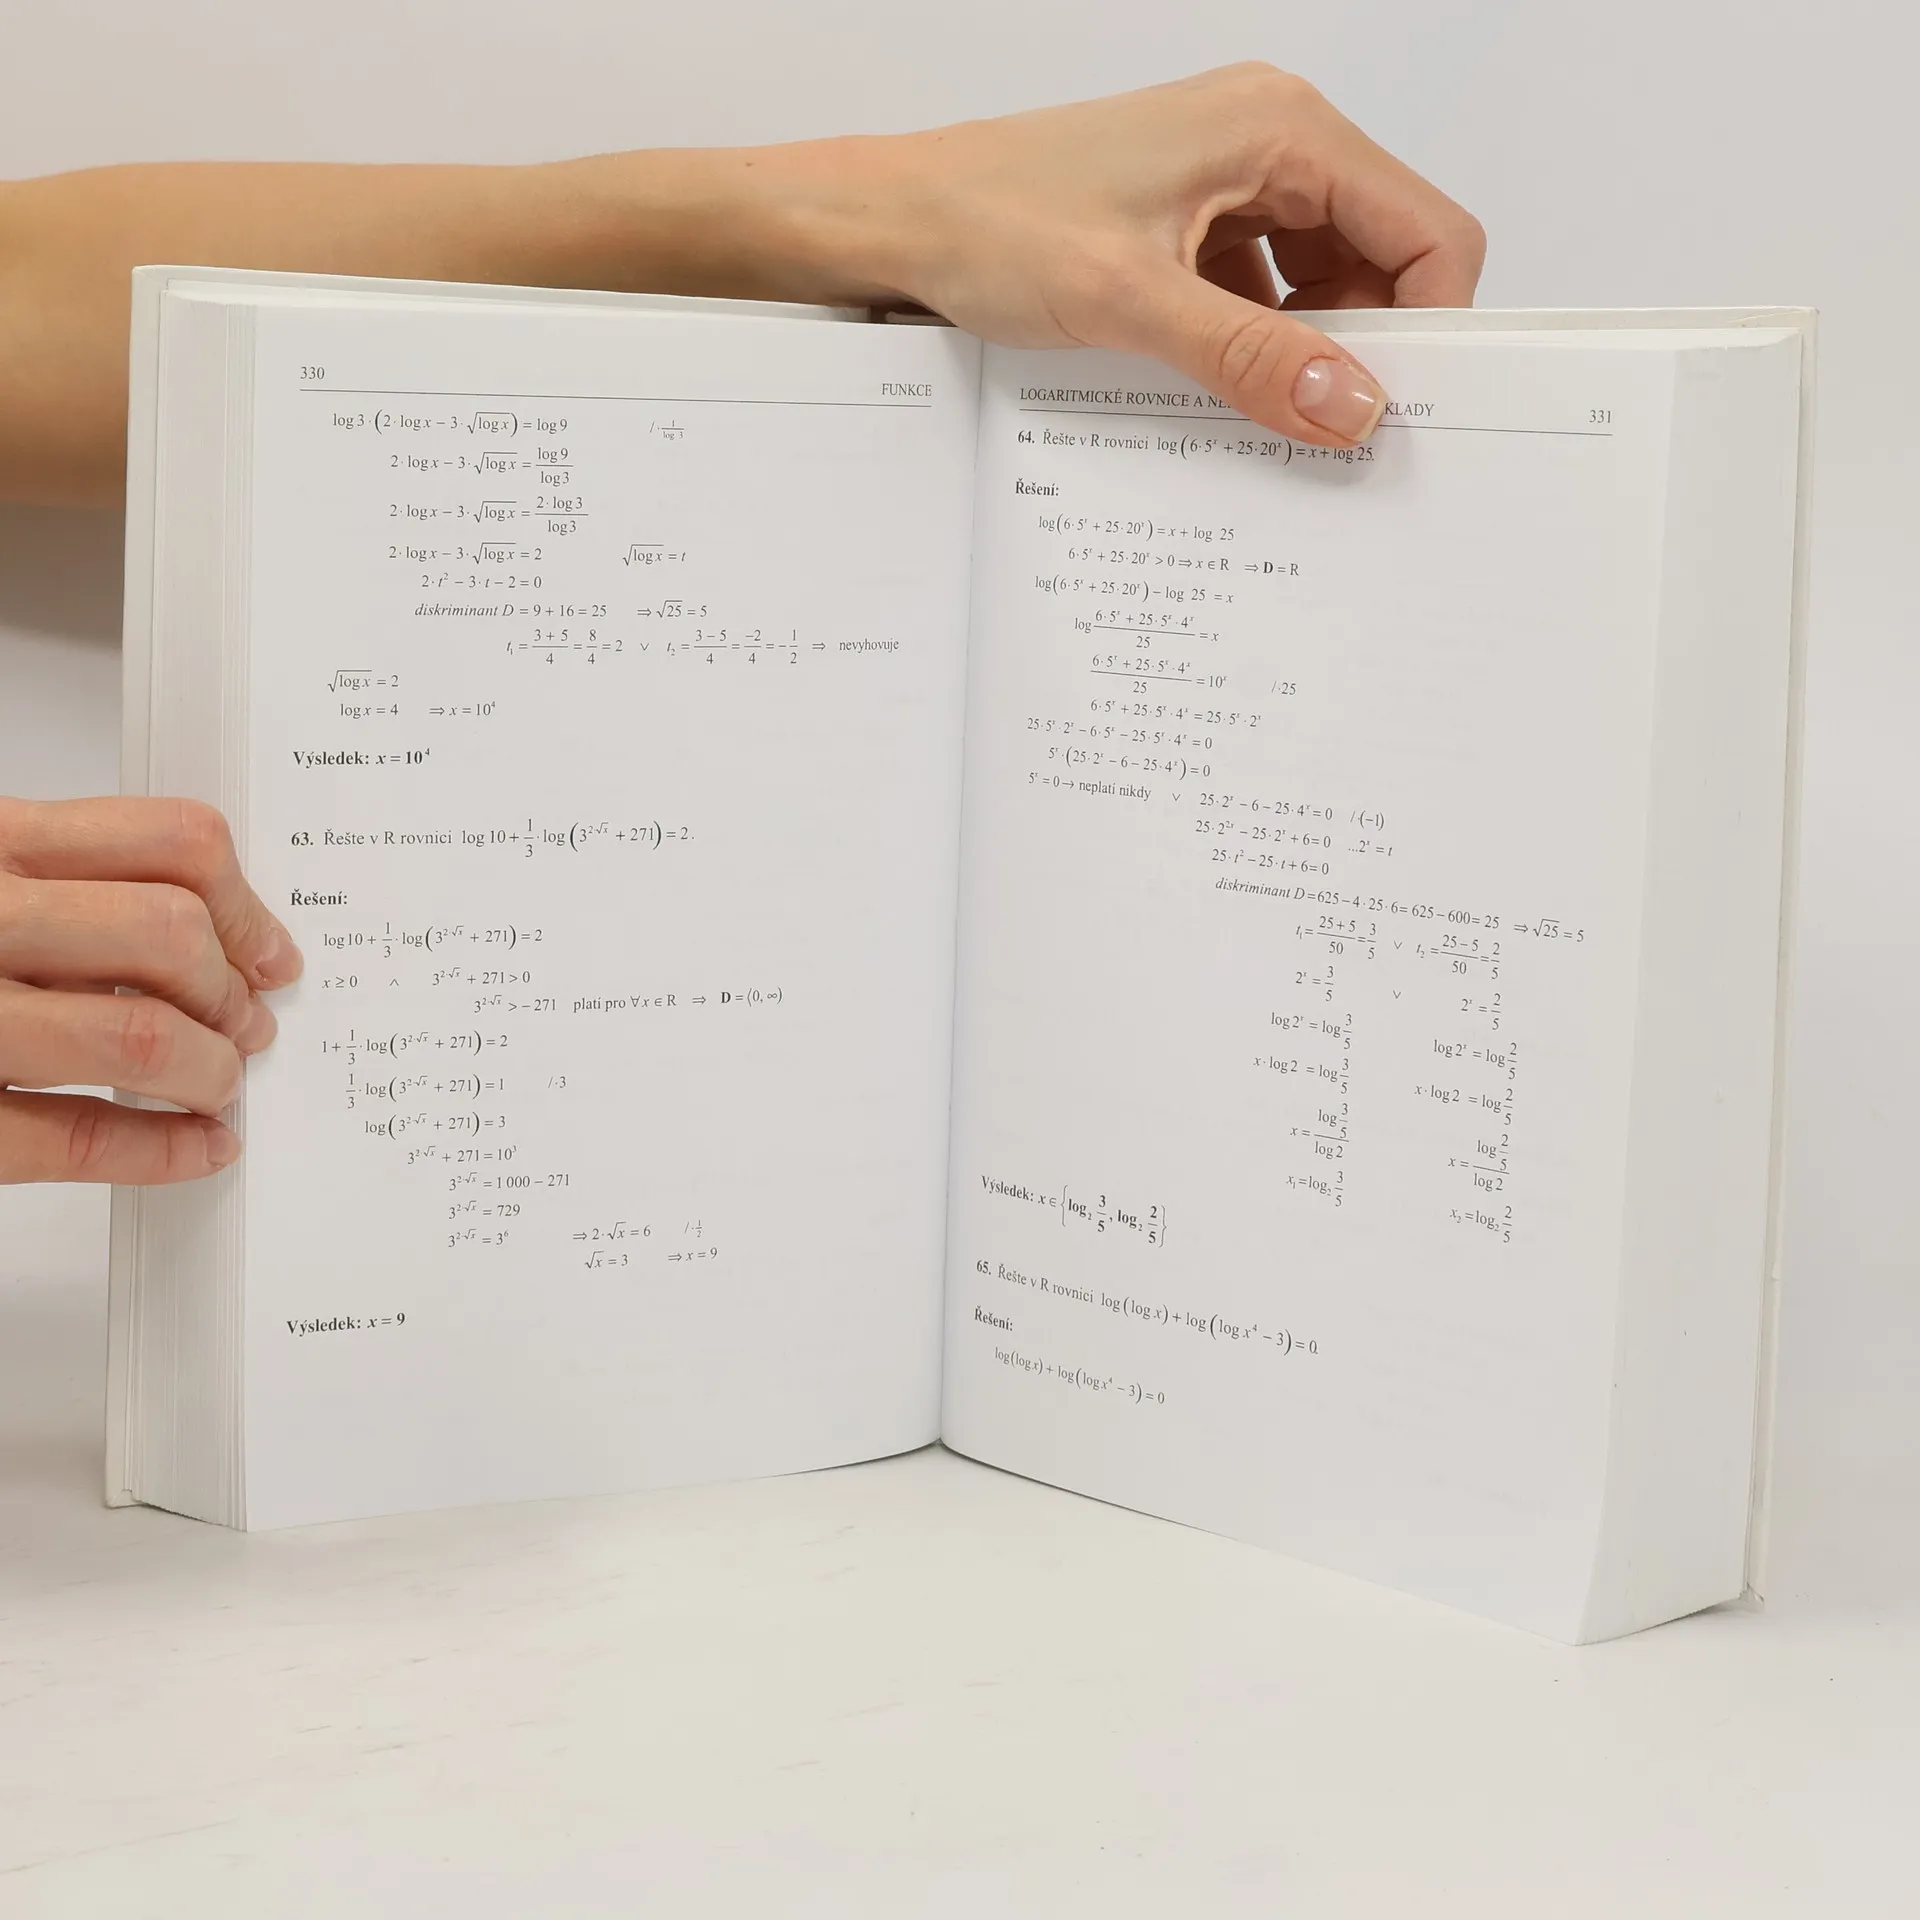 330
FUNKCE
log 3 · (2 · log x − 3 · √(log x)) = log 9 / · 1/log 3
2 · log x − 3 · √(log x) = log 9/log 3
2 · log x − 3 · √(log x) = 2 · log 3/log 3
2 · log x − 3 · √(log x) = 2 √(log x) = t
2 · t² − 3 · t − 2 = 0
diskriminant D = 9 + 16 = 25 ⇒ √25 = 5
t₁ = (3 + 5)/4 = 8/4 = 2 ∨ t₂ = (3 − 5)/4 = −2/4 = −1/2 ⇒ nevyhovuje
√(log x) = 2
log x = 4 ⇒ x = 10⁴
Výsledek: x = 10⁴
63. Řešte v R rovnici log 10 + 1/3 · log (3^(2·√x) + 271) = 2.
Řešení:
log 10 + 1/3 · log (3^(2·√x) + 271) = 2
x ≥ 0 ∧ 3^(2·√x) + 271 > 0
3^(2·√x) > − 271 platí pro ∀ x ∈ R ⇒ D = ⟨0, ∞)
1 + 1/3 · log (3^(2·√x) + 271) = 2
1/3 · log (3^(2·√x) + 271) = 1 / · 3
log (3^(2·√x) + 271) = 3
3^(2·√x) + 271 = 10³
3^(2·√x) = 1 000 − 271
3^(2·√x) = 729
3^(2·√x) = 3⁶ ⇒ 2 · √x = 6 / · 1/2
√x = 3 ⇒ x = 9
Výsledek: x = 9
LOGARITMICKÉ ROVNICE A KLADY 331
64. Řešte v R rovnici log (6 · 5ˣ + 25 · 20ˣ) = x + log 25.
Řešení:
log (6 · 5ˣ + 25 · 20ˣ) = x + log 25
6 · 5ˣ + 25 · 20ˣ > 0 ⇒ x ∈ R ⇒ D = R
log (6 · 5ˣ + 25 · 20ˣ) − log 25 = x
log (6 · 5ˣ + 25 · 5ˣ · 4ˣ)/25 = x
(6 · 5ˣ + 25 · 5ˣ · 4ˣ)/25 = 10ˣ / · 25
6 · 5ˣ + 25 · 5ˣ · 4ˣ = 25 · 5ˣ · 2ˣ
25 · 5ˣ · 2ˣ − 6 · 5ˣ − 25 · 5ˣ · 4ˣ = 0
5ˣ · (25 · 2ˣ − 6 − 25 · 4ˣ) = 0
5ˣ = 0 → neplatí nikdy ∨ 25 · 2ˣ − 6 − 25 · 4ˣ = 0 / · (−1)
25 · 2²ˣ − 25 · 2ˣ + 6 = 0 ...2ˣ = t
25 · t² − 25 · t + 6 = 0
diskriminant D = 625 − 4 · 25 · 6 = 625 − 600 = 25 ⇒ √25 = 5
t₁ = (25 + 5)/50 = 3/5 ∨ t₂ = (25 − 5)/50 = 2/5
2ˣ = 3/5 ∨ 2ˣ = 2/5
log 2ˣ = log 3/5 log 2ˣ = log 2/5
x · log 2 = log 3/5 x · log 2 = log 2/5
x = (log 3/5)/log 2 x = (log 2/5)/log 2
x₁ = log₂ 3/5 x₂ = log₂ 2/5
Výsledek: x ∈ {log₂ 3/5, log₂ 2/5}
65. Řešte v R rovnici log (log x) + log (log x⁴ − 3) = 0.
Řešení:
log (log x) + log (log x⁴ − 3) = 0